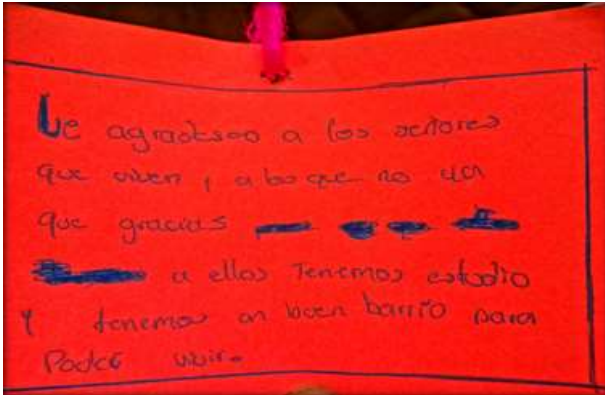 Le agradesco a los señores
que viven y a los que no
que gracias
a ellos Tenemos estudio
y tenemos un buen barrio para
Poder vivir.